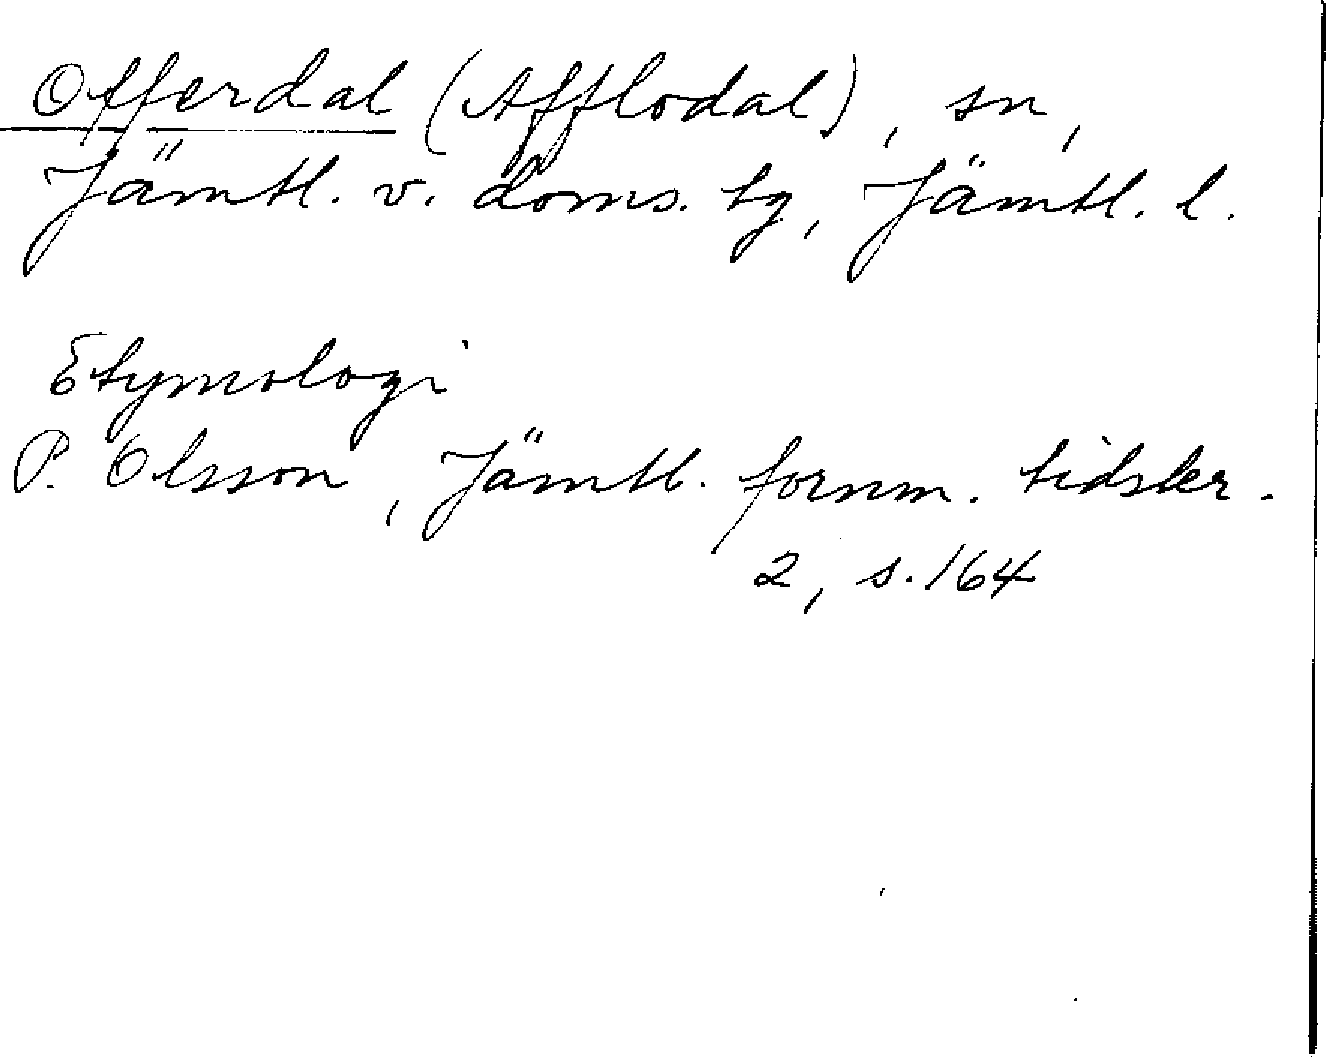 Offerdal (Afflodal), sn,
Jämtl. v. doms. tg, Jämtl. l.
Etymologi
P. Olsson, Jämtl. fornm. tidskr.
2, s. 164